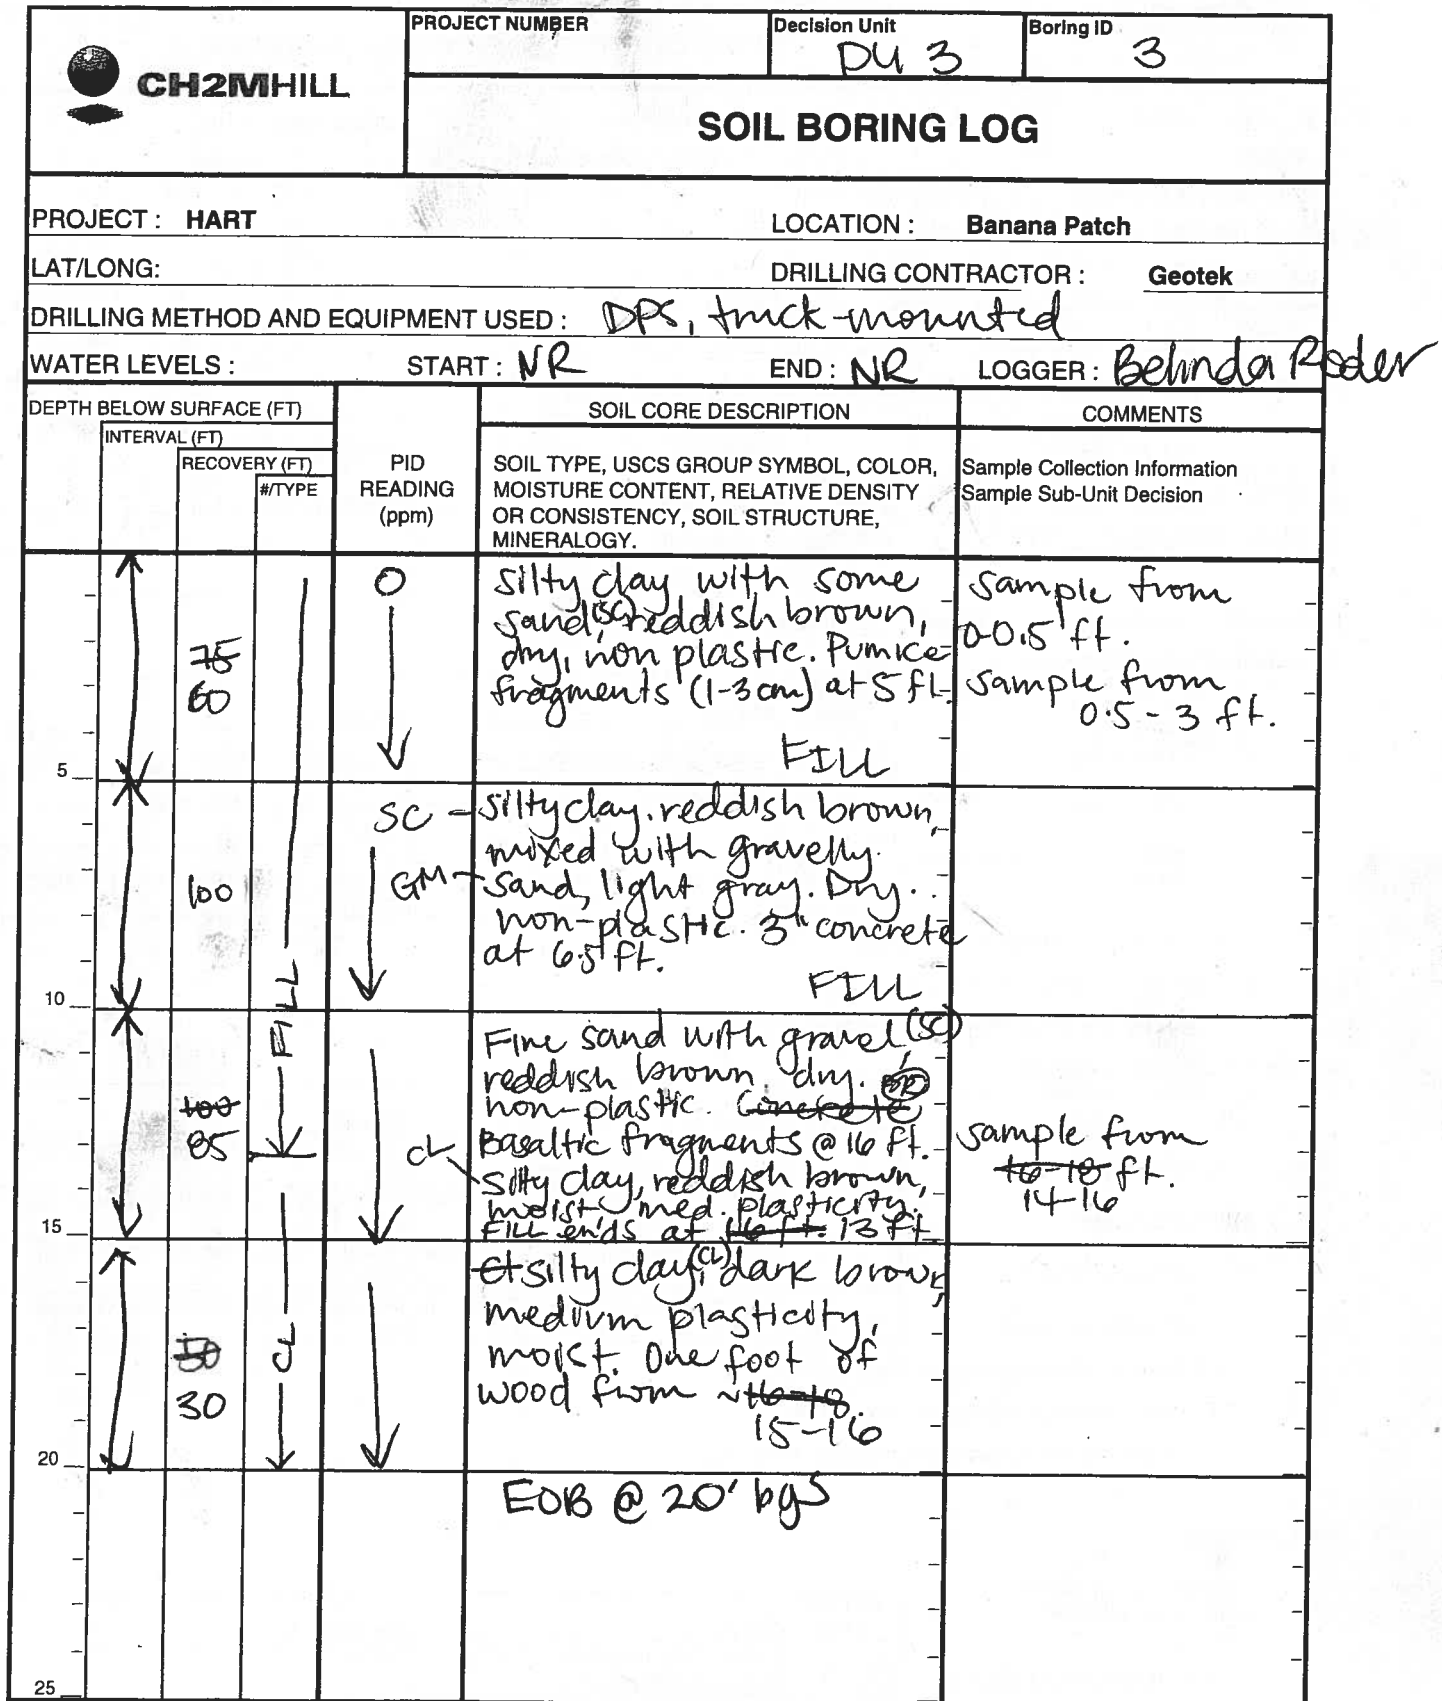 CH2MHILL
PROJECT NUMBER
Decision Unit
DU 3
Boring ID
3
SOIL BORING LOG
PROJECT : HART
LOCATION : Banana Patch
LAT/LONG:
DRILLING CONTRACTOR : Geotek
DRILLING METHOD AND EQUIPMENT USED : DPS, truck-mounted
WATER LEVELS : START : NR END : NR LOGGER : Belinda Roder
DEPTH BELOW SURFACE (FT)
INTERVAL (FT)
RECOVERY (FT)
#/TYPE
PID
READING
(ppm)
SOIL CORE DESCRIPTION
SOIL TYPE, USCS GROUP SYMBOL, COLOR,
MOISTURE CONTENT, RELATIVE DENSITY
OR CONSISTENCY, SOIL STRUCTURE,
MINERALOGY.
COMMENTS
Sample Collection Information
Sample Sub-Unit Decision
75
60
0
silty clay with some
sand, (SC) reddish brown,
dry, non plastic. Pumice
fragments (1-3 cm) at 5 ft.
FILL
sample from
0-0.5 ft.
sample from
0.5 - 3 ft.
5
100
SC - silty clay. reddish brown,
mixed with gravelly
GM - sand, light gray. Dry.
non-plastic. 3" concrete
at 6.5 ft.
FILL
10
FILL
100
85
Fine sand with gravel (SC)
reddish brown. dry.
non-plastic. Concrete
Basaltic fragments @ 16 ft.
CL silty clay, reddish brown,
moist, med. plasticity.
FILL ends at 16 ft. 13 ft
sample from
16-18 ft.
14-16
15
50
30
CL
CL silty clay, (CL) dark brown,
medium plasticity,
moist. One foot of
wood from ~16-18.
15-16
20
EOB @ 20' bgs
25